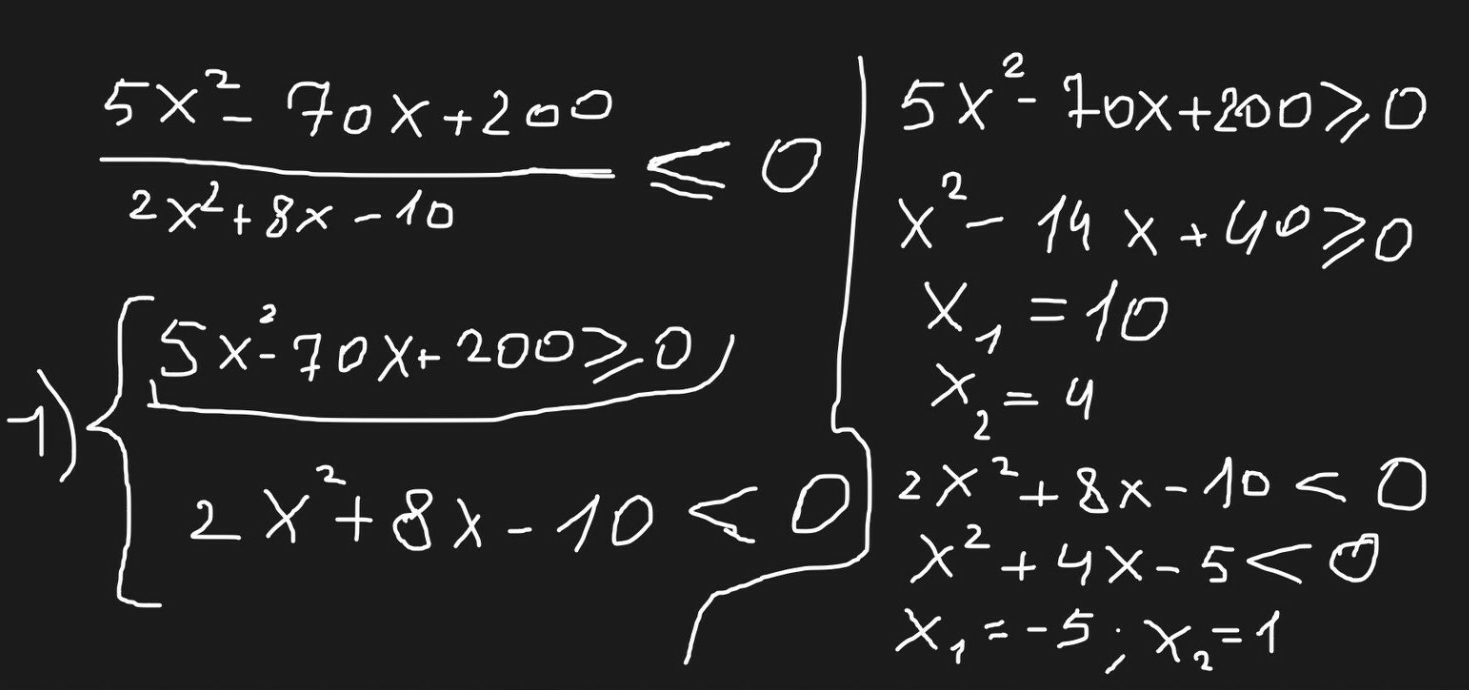 5x² - 70x + 200
2x² + 8x - 10
≤ 0
1) { 5x² - 70x + 200 ≥ 0
2x² + 8x - 10 < 0
5x² - 70x + 200 ≥ 0
x² - 14x + 40 ≥ 0
x₁ = 10
x₂ = 4
2x² + 8x - 10 < 0
x² + 4x - 5 < 0
x₁ = -5; x₂ = 1